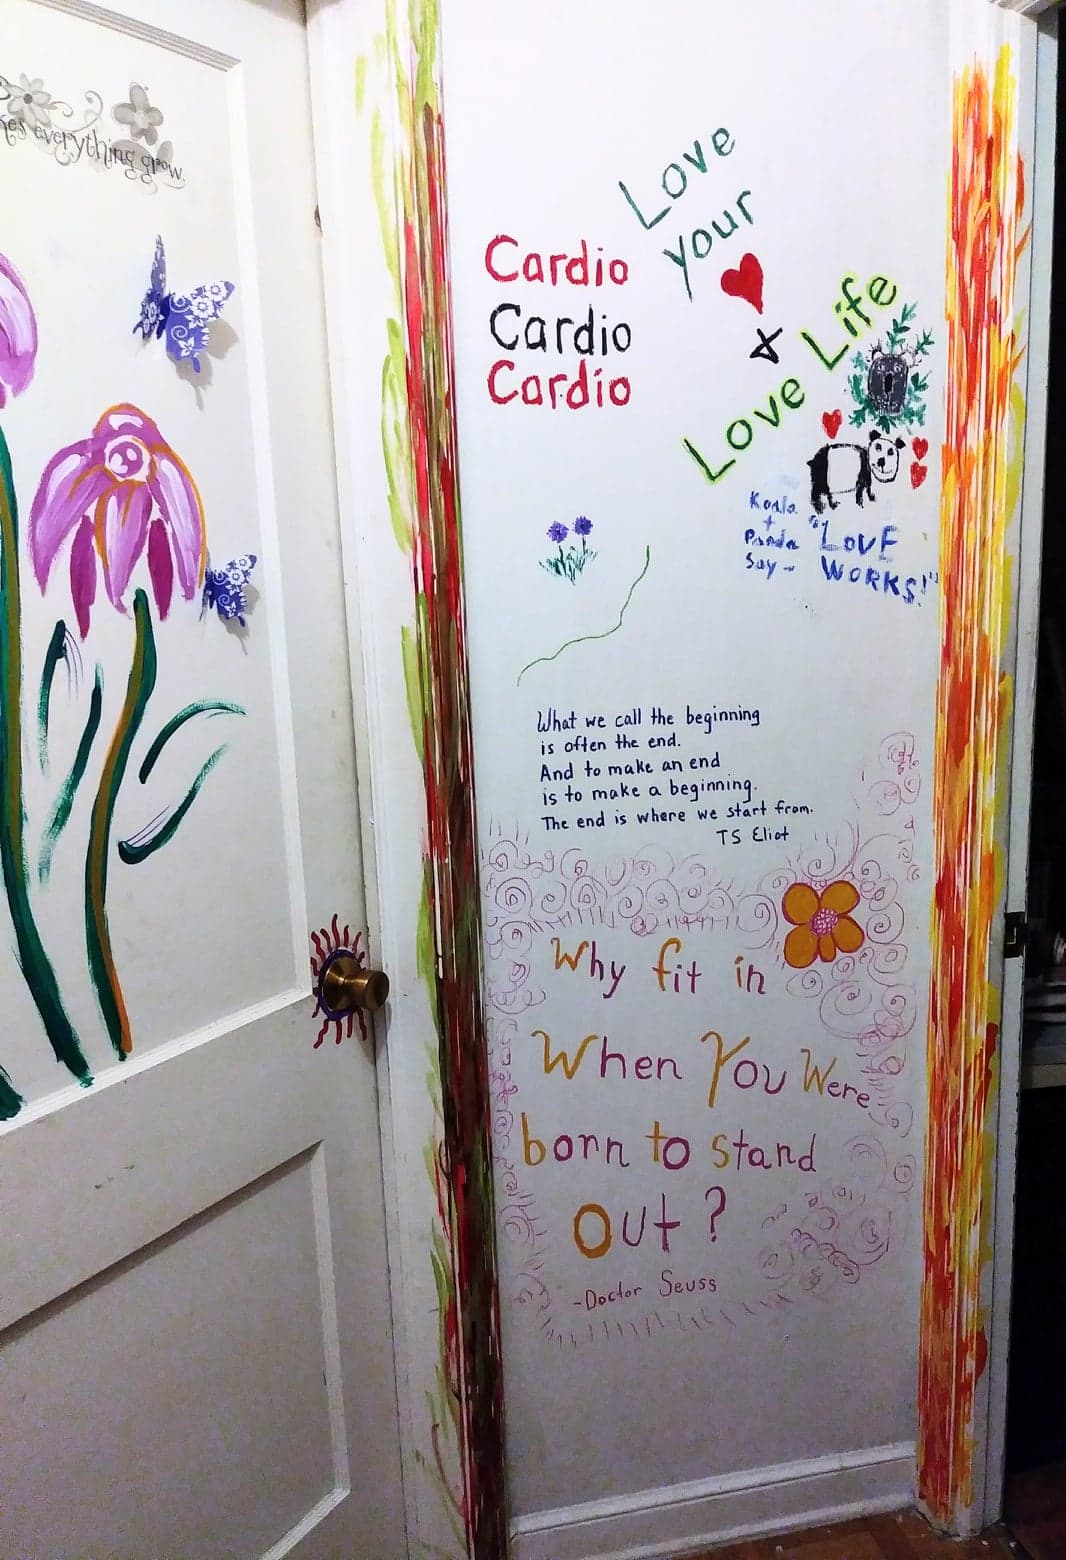 everything grow.
Love
your
&
Love Life
Cardio
Cardio
Cardio
Koala
+
Panda
Say -
"LOVE
WORKS!"
What we call the beginning
is often the end.
And to make an end
is to make a beginning.
The end is where we start from.
TS Eliot
Why fit in
When You Were
born to stand
out?
-Doctor Seuss